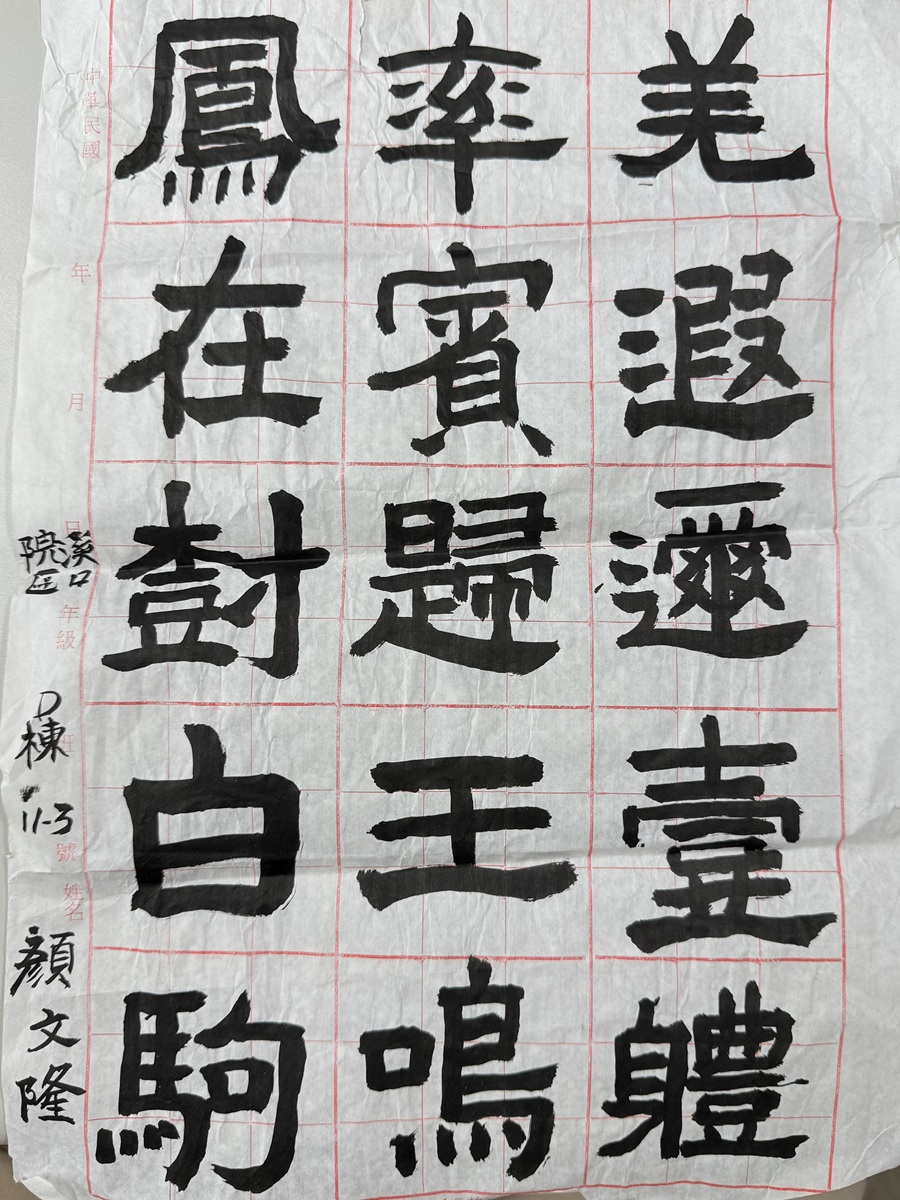 羌遐邇壹軆
率賓歸王鳴
鳳在樹白駒
中華民國 年 月 日 年級 班 號 姓名
溪口
院区
D棟
11-3
顏文隆